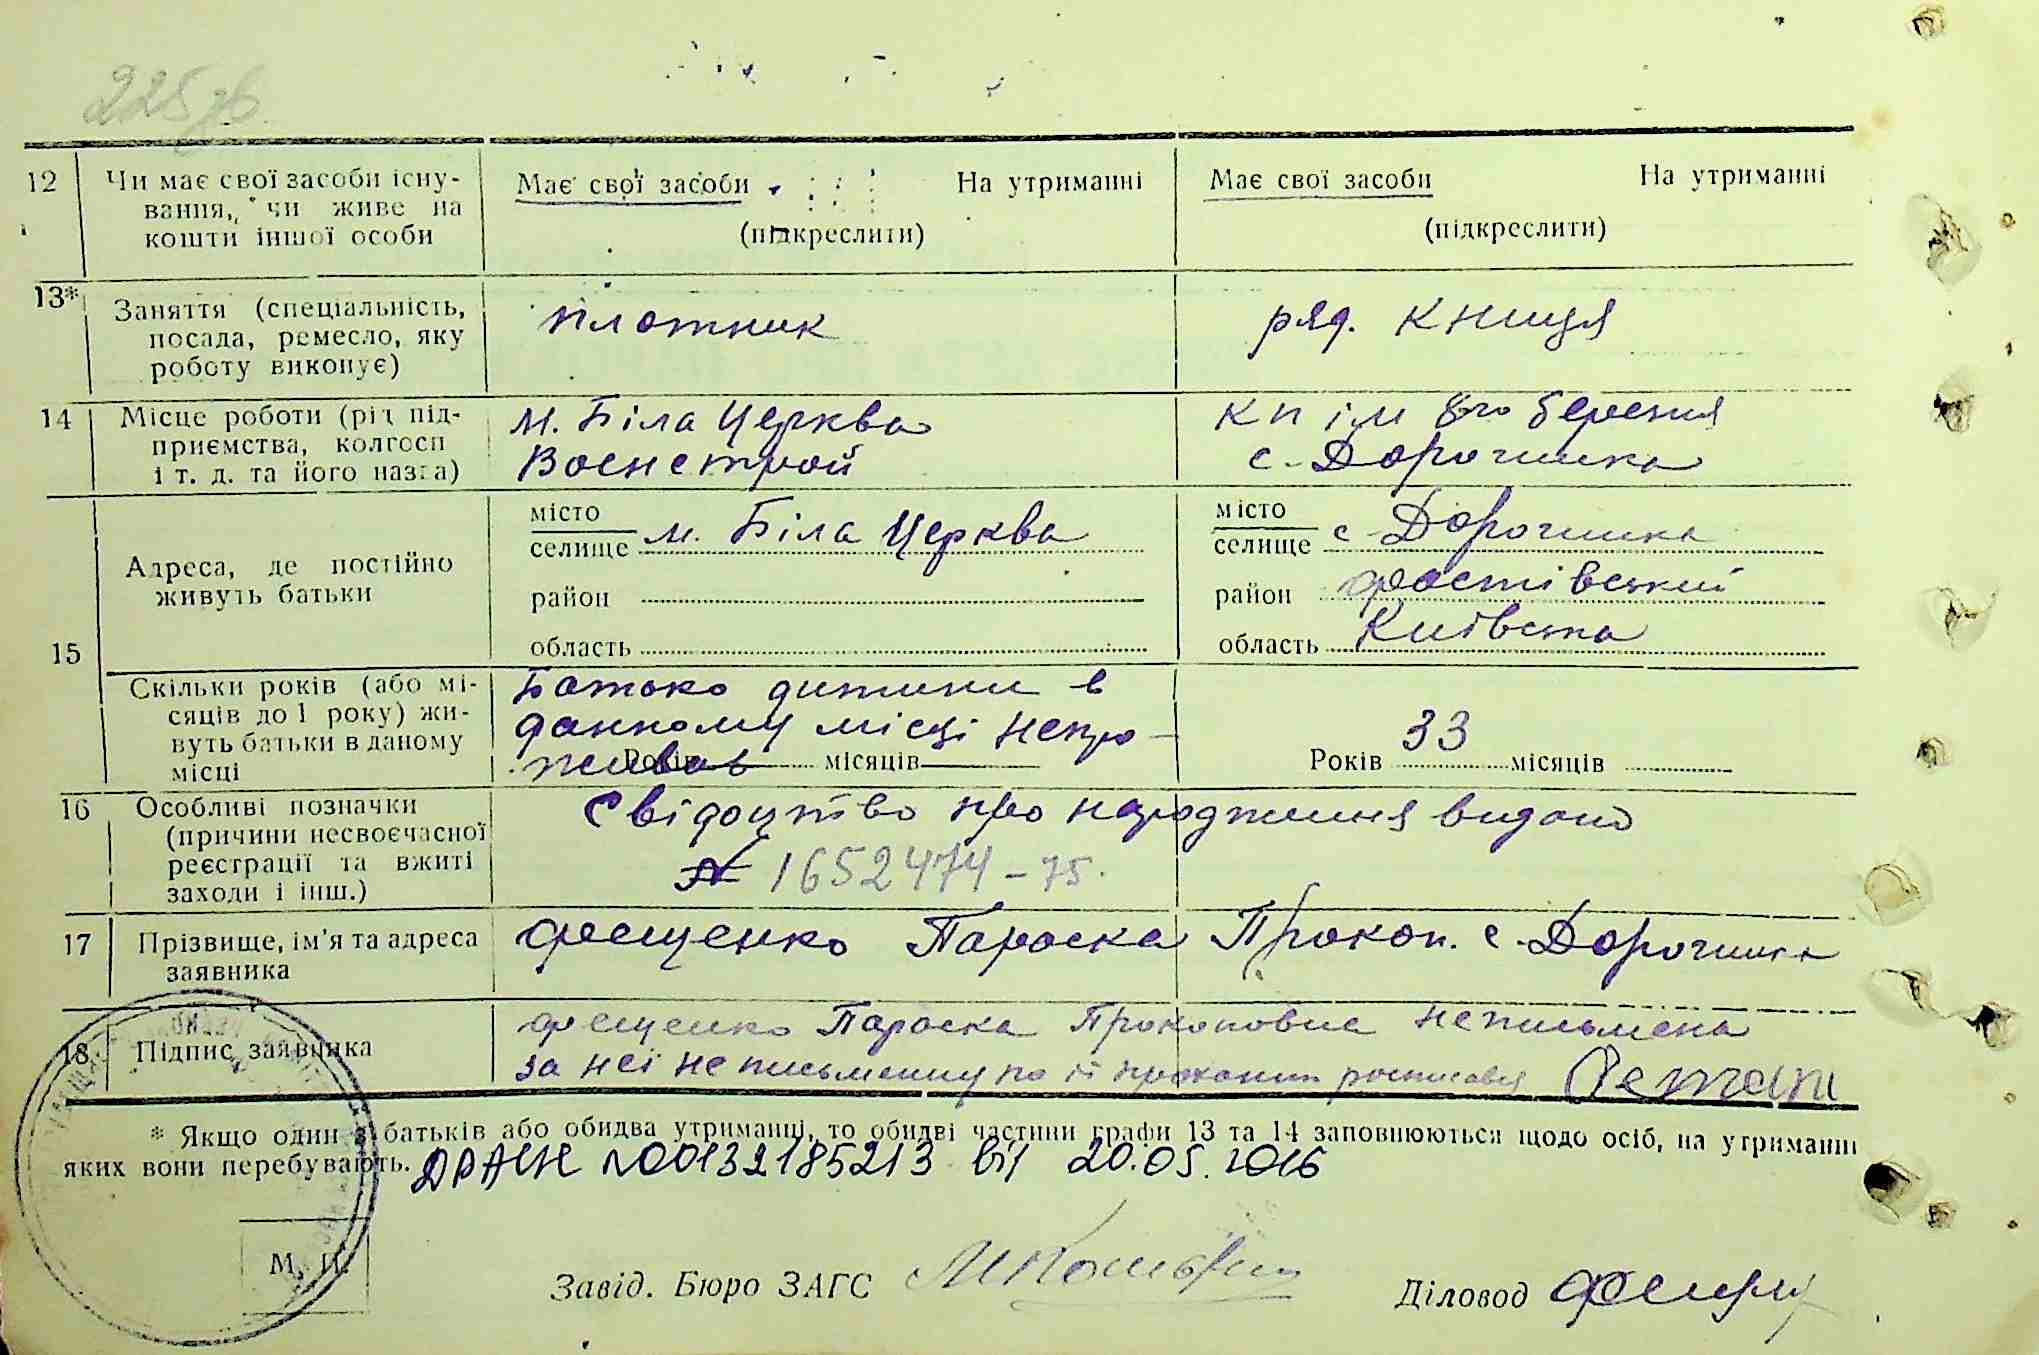 225зв
12 Чи має свої засоби існу-
вання, чи живе на
кошти іншої особи
Має свої засоби На утриманні
(підкреслити)
Має свої засоби На утриманні
(підкреслити)
13* Заняття (спеціальність,
посада, ремесло, яку
роботу виконує)
плотник
ряд. книця
14 Місце роботи (рід під-
приємства, колгосп
і т. д. та його назва)
м. Біла Церква
Воєнстрой
кп ім 8го березня
с. Дорогинка
15 Адреса, де постійно
живуть батьки
місто
селище м. Біла Церква
район
область
місто
селище с Дорогинка
район Фастівський
область Київська
Скільки років (або мі-
сяців до 1 року) жи-
вуть батьки в даному
місці
Батько дитини в
данному місці непро-
живав
Років місяців
33
Років місяців
16 Особливі позначки
(причини несвоєчасної
реєстрації та вжиті
заходи і інш.)
Свідоцтво про народження видано
№ 1652474-75.
17 Прізвище, ім'я та адреса
заявника
Фещенко Параска Прокоп. с. Дорогинка
18 Підпис заявника
Фещенко Параска Прокоповна неписьмена
за неї неписьменну по її проханню росписався
* Якщо один з батьків або обидва утриманці, то обидві частини графи 13 та 14 заповнюються щодо осіб, на утриманні
яких вони перебувають. ДРАЦС №00132185213 від 20.05.2016
М. П.
Завід. Бюро ЗАГС
Діловод